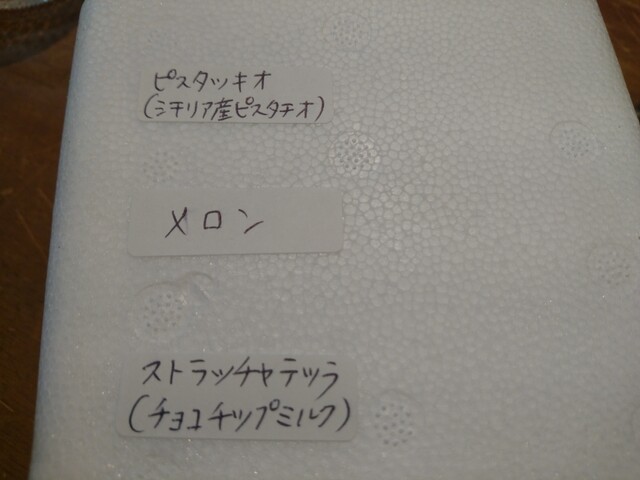 ピスタッキオ
(シチリア産ピスタチオ)
メロン
ストラッチャテッラ
(チョコチップミルク)